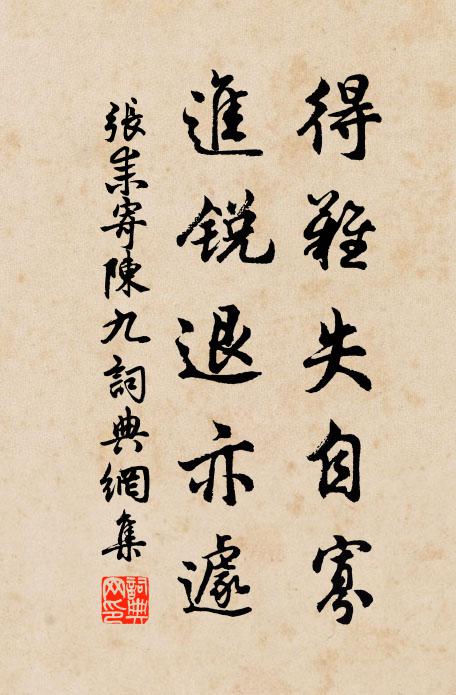 得難失自寡
進銳退亦遽
張耒寄陳九詞典網集
詞典网印